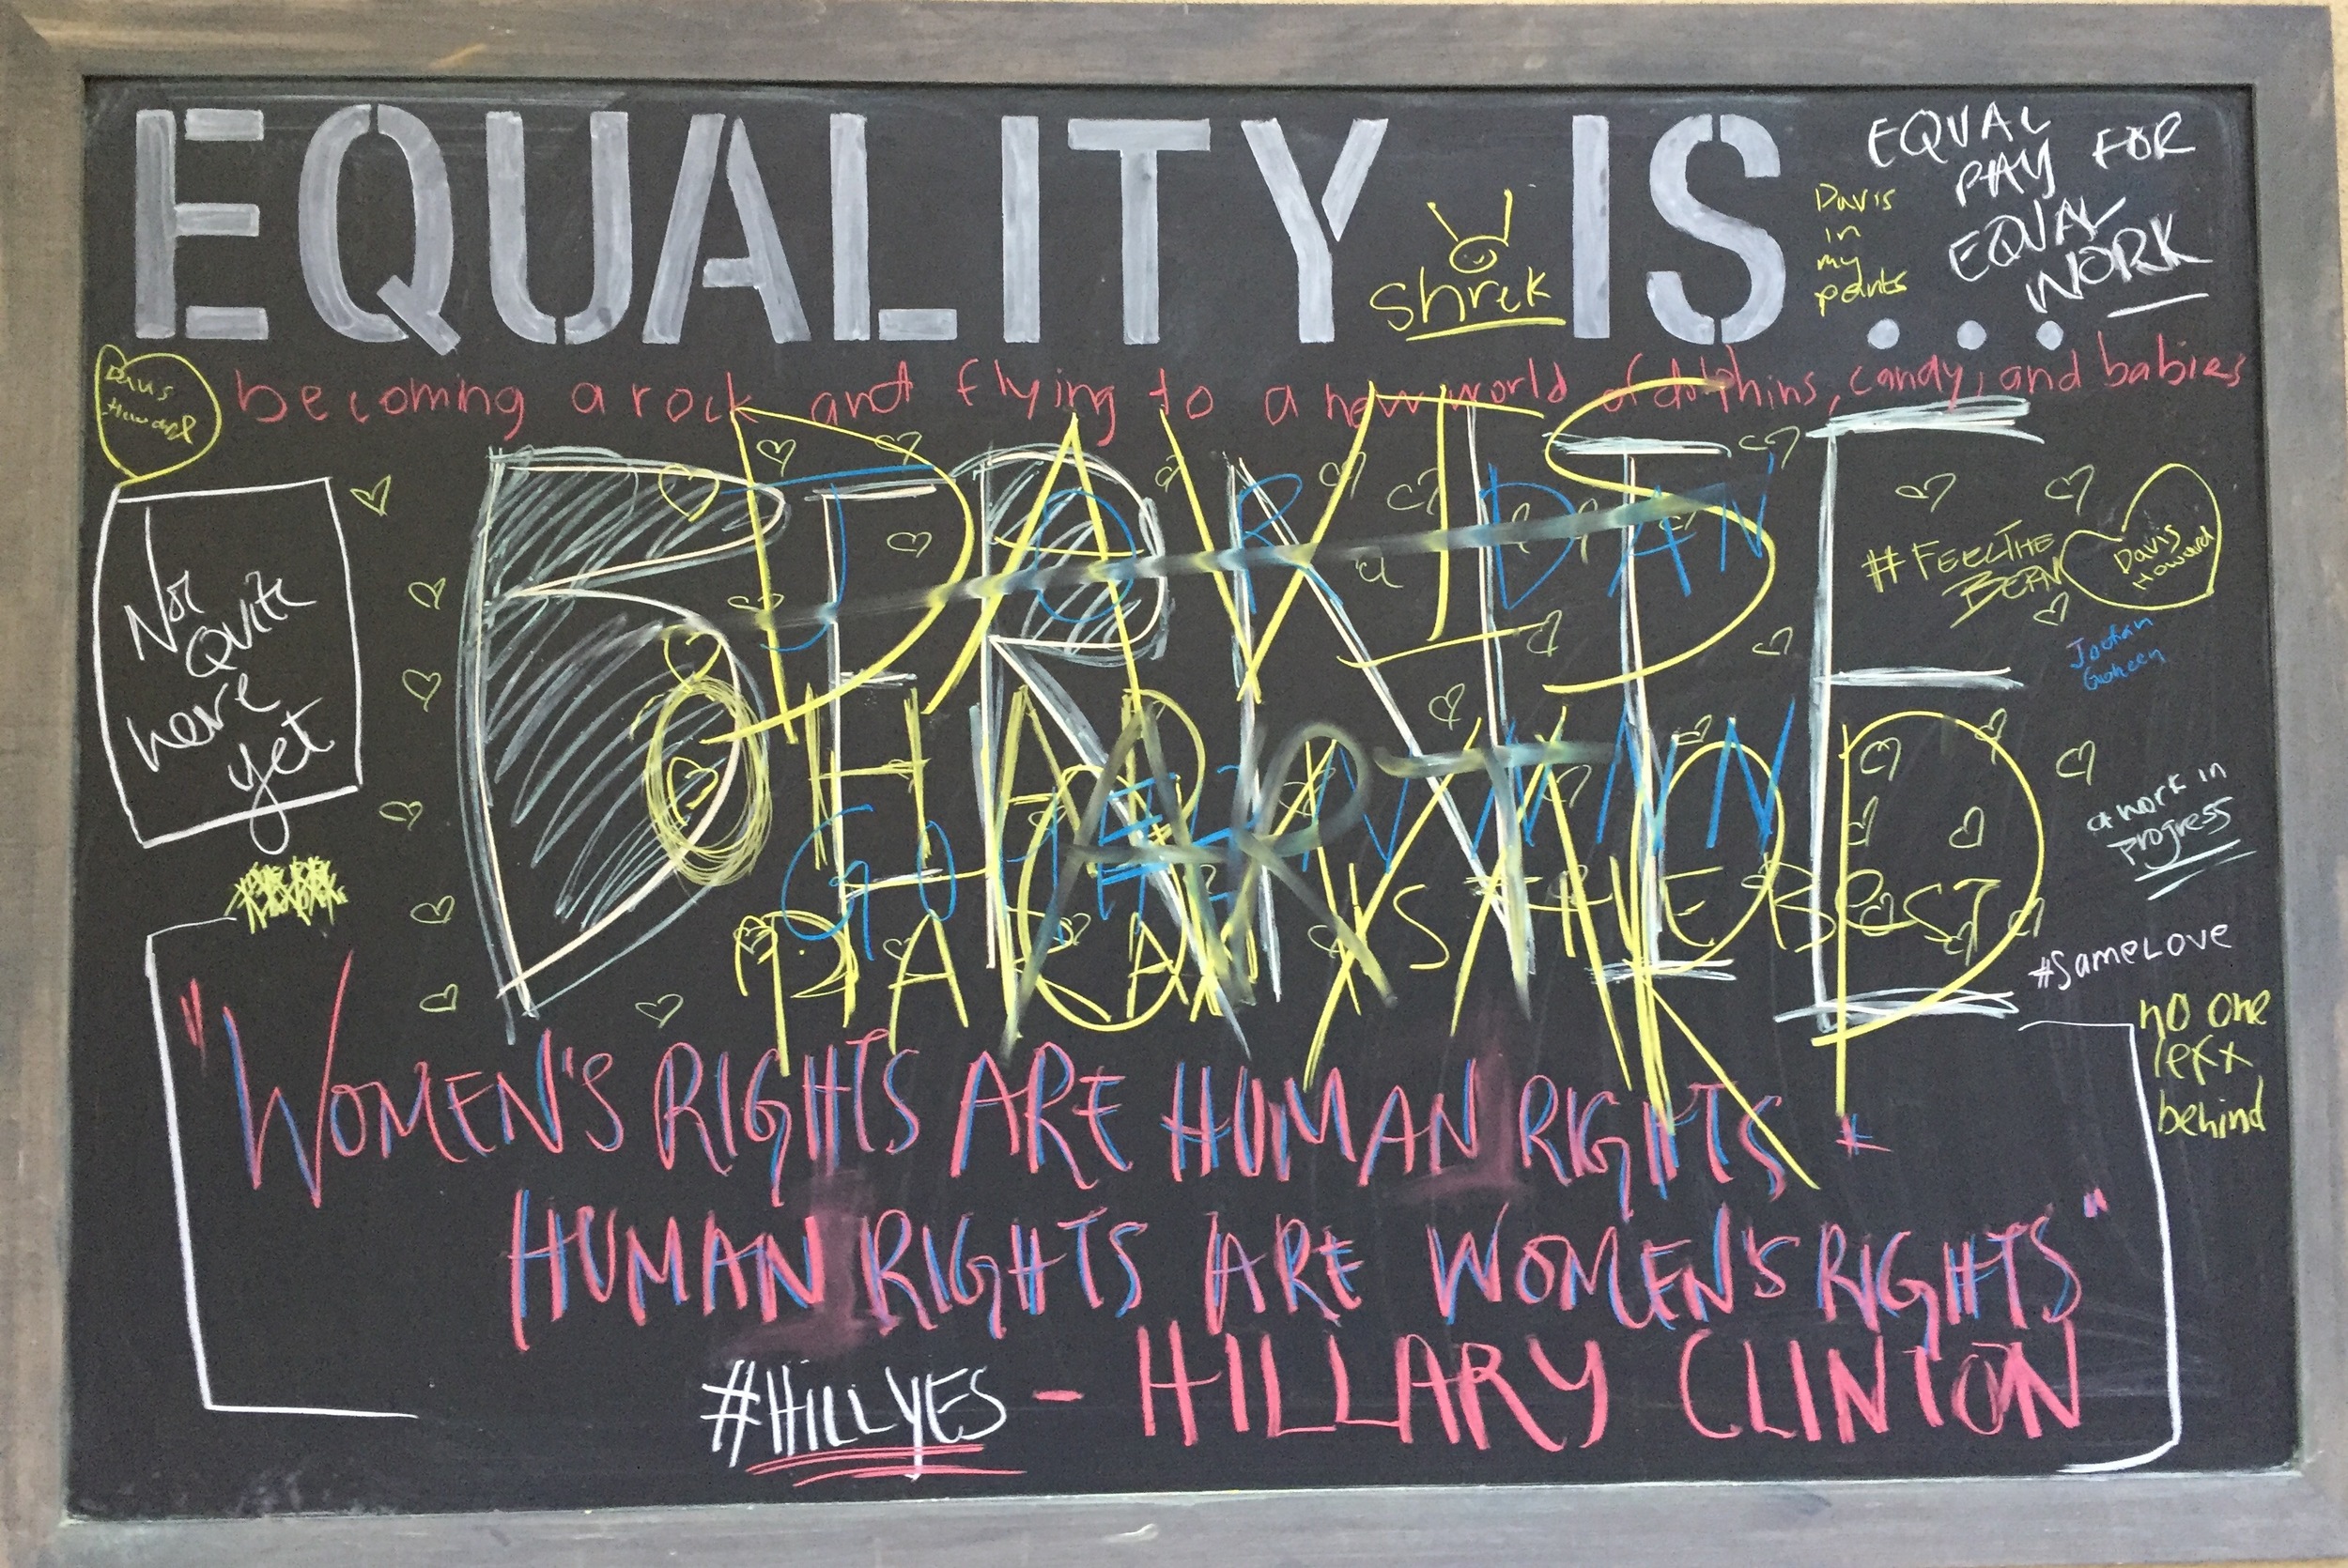 EQUALITY IS...
EQUAL
PAY FOR
EQUAL
WORK
Davis
in
my
pants
Shrek
Davis
Howard
becoming a rock and flying to a new world of dolphins, candy, and babies
BERNIE
DAVIS
JORDAN
Not
Quite
here
yet
#FEELTHE
BERN
Davis
Howard
HOWARD
ART
IS THE BEST
a work in
progress
#SameLove
no one
lefx
behind
"WOMEN'S RIGHTS ARE HUMAN RIGHTS *
HUMAN RIGHTS ARE WOMEN'S RIGHTS"
#HILLYES - HILLARY CLINTON